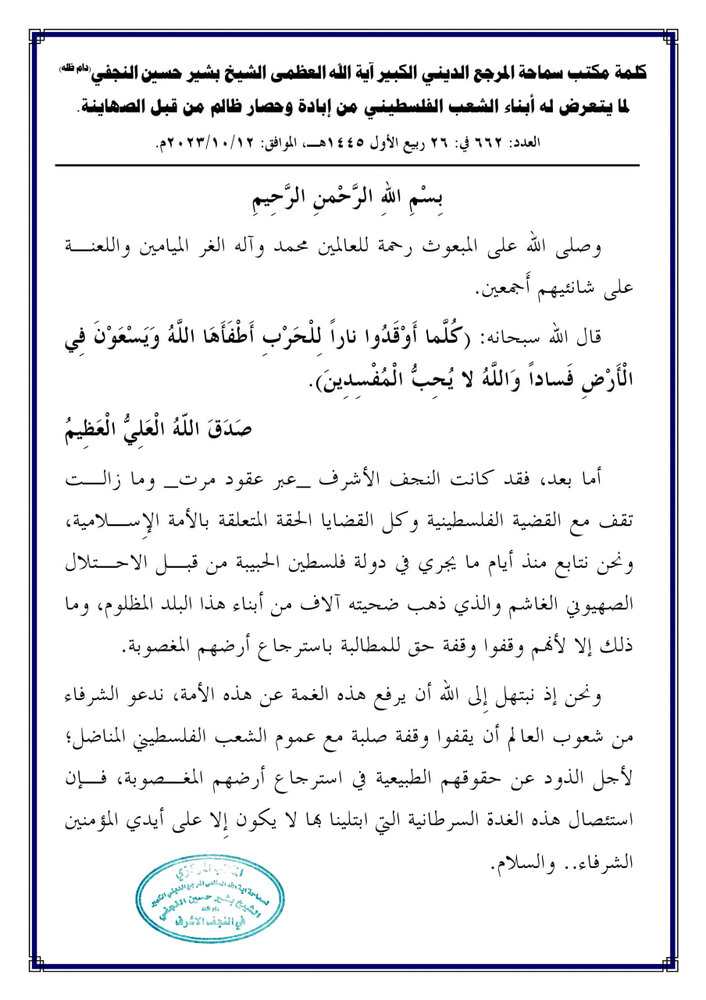 كلمة مكتب سماحة المرجع الديني الكبير آية الله العظمى الشيخ بشير حسين النجفي (دام ظله)
لما يتعرض له أبناء الشعب الفلسطيني من إبادة وحصار ظالم من قبل الصهاينة.
العدد: ٦٦٢ في: ٢٦ ربيع الأول ١٤٤٥هـ، الموافق: ٢٠٢٣/١٠/١٢م.
بِسْمِ اللهِ الرَّحْمنِ الرَّحِيمِ
وصلى الله على المبعوث رحمة للعالمين محمد وآله الغر الميامين واللعنة
على شانئيهم أجمعين.
قال الله سبحانه: (كُلَّما أَوْقَدُوا ناراً لِلْحَرْبِ أَطْفَأَهَا اللَّهُ وَيَسْعَوْنَ فِي
الْأَرْضِ فَساداً وَاللَّهُ لا يُحِبُّ الْمُفْسِدِينَ).
صَدَقَ اللّهُ الْعَلِيُّ الْعَظِيمُ
أما بعد، فقد كانت النجف الأشرف _عبر عقود مرت_ وما زالت
تقف مع القضية الفلسطينية وكل القضايا الحقة المتعلقة بالأمة الإسلامية،
ونحن نتابع منذ أيام ما يجري في دولة فلسطين الحبيبة من قبل الاحتلال
الصهيوني الغاشم والذي ذهب ضحيته آلاف من أبناء هذا البلد المظلوم، وما
ذلك إلا لأنهم وقفوا وقفة حق للمطالبة باسترجاع أرضهم المغصوبة.
ونحن إذ نبتهل إلى الله أن يرفع هذه الغمة عن هذه الأمة، ندعو الشرفاء
من شعوب العالم أن يقفوا وقفة صلبة مع عموم الشعب الفلسطيني المناضل؛
لأجل الذود عن حقوقهم الطبيعية في استرجاع أرضهم المغصوبة، فإن
استئصال هذه الغدة السرطانية التي ابتلينا بها لا يكون إلا على أيدي المؤمنين
الشرفاء.. والسلام.
المكتب المركزي
لسماحة آية الله العظمى المرجع الديني الكبير
الشيخ بشير حسين النجفي
دام ظله
في النجف الاشرف